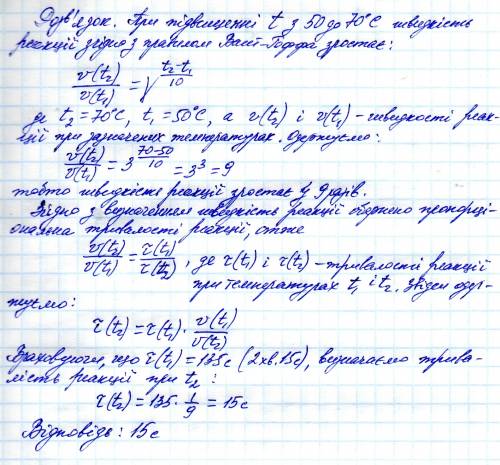 Розв'язок. При підвищенні t з 50 до 70°C швидкість
реакції згідно з правилом Вант-Гоффа зростає:
v(t₂)/v(t₁) = γ^((t₂-t₁)/10)
де t₂ = 70°C, t₁ = 50°C, а v(t₂) і v(t₁) - швидкості реак-
ції при зазначених температурах. Одержуємо:
v(t₂)/v(t₁) = 3^((70-50)/10) = 3³ = 9
тобто швидкість реакції зростає у 9 разів.
Згідно з визначенням швидкість реакції обернено пропорці-
ональна тривалості реакції, отже
v(t₂)/v(t₁) = τ(t₁)/τ(t₂), де τ(t₁) і τ(t₂) - тривалості реакції
при температурах t₁ і t₂. Звідси одер-
жуємо:
τ(t₂) = τ(t₁) · v(t₁)/v(t₂)
Враховуючи, що τ(t₁) = 135с (2хв.15с), визначаємо трива-
лість реакції при t₂:
τ(t₂) = 135 · 1/9 = 15с
Відповідь: 15с